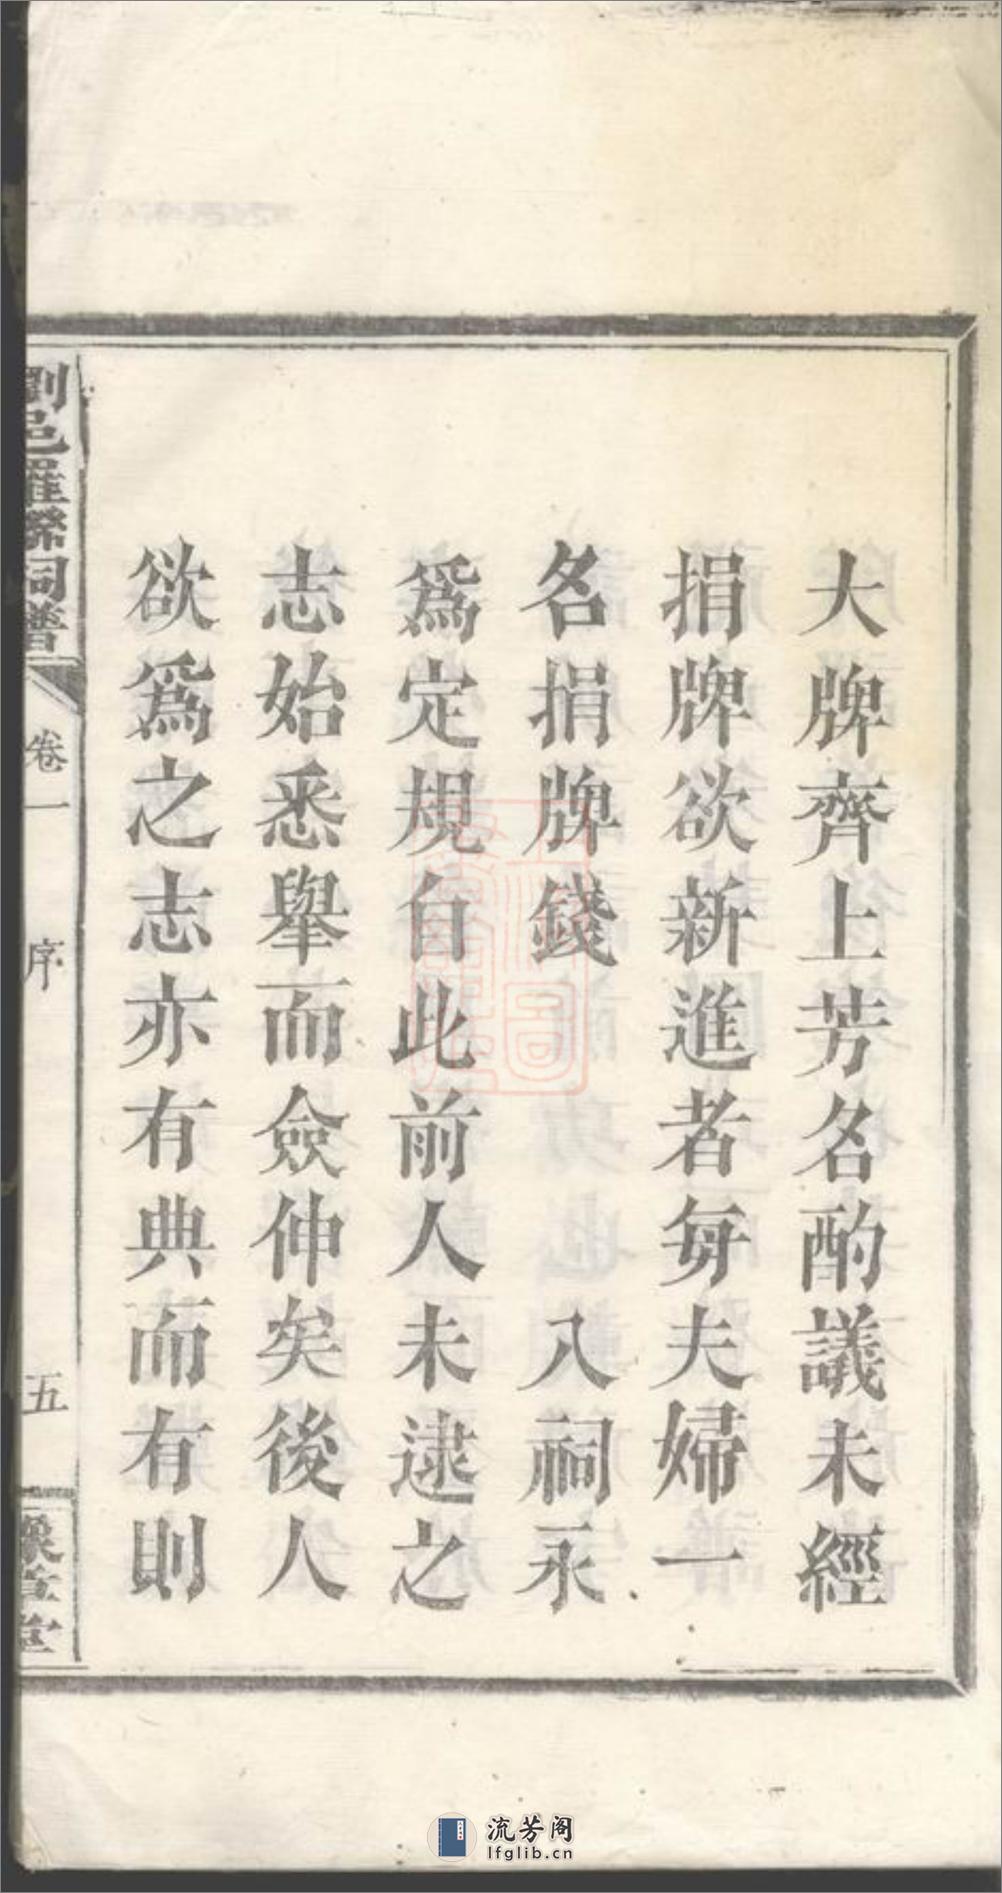 大牌齊上芳名酌議未經
捐牌欲新進者每夫婦一
名捐牌錢　　入祠永
爲定規自此前人未逮之
志始悉舉而僉伸矣後人
欲爲之志亦有典而有則
劉邑羅滎祠譜
卷一
序
五
豫章堂
流芳阁
lfglib.cn